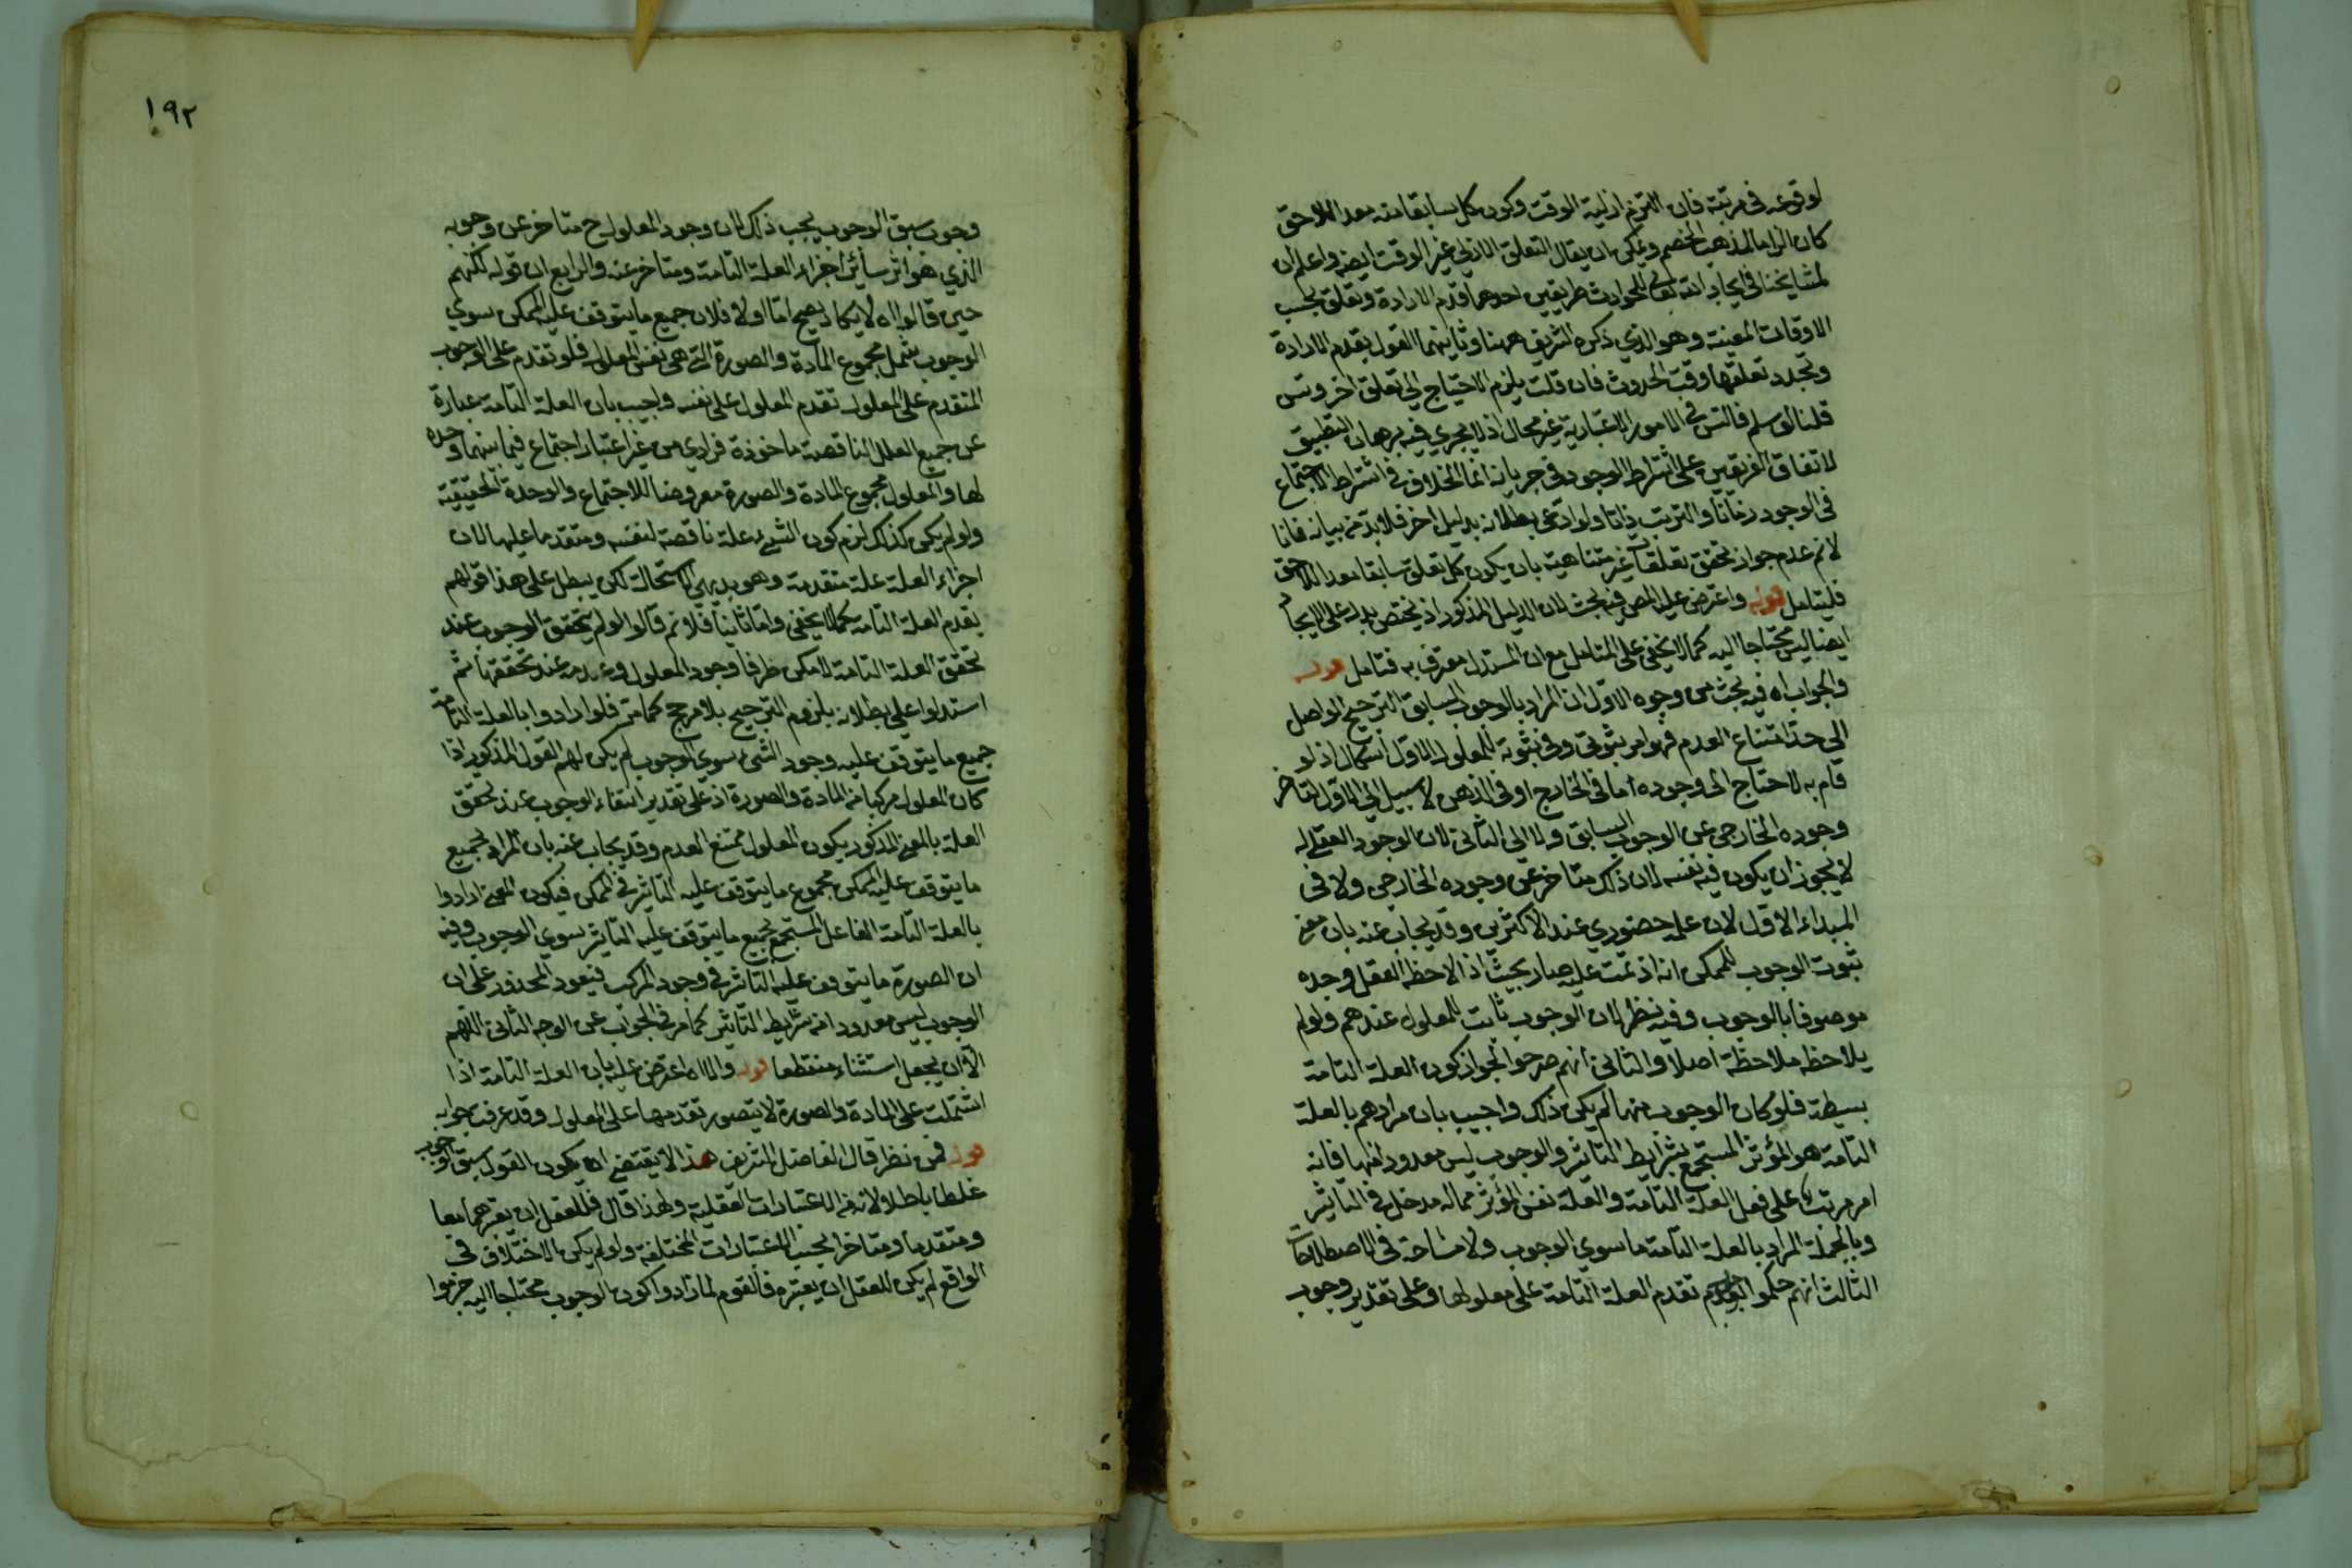 لوقوعه في مرتبة فان التزم ازلية الوقت وكون كل سابقا منه معد اللاحق
كان الزاما لمذهب الخصم ويمكن ان يقال التعلق الازلي غير الوقت ايضا واعلم ان
لمشايخنا في ايجاد الله تعالى للحوادث طريقين احدهما قدم الارادة وتعلق بحسب
الاوقات المعينة وهو الذي ذكره الشريف ههنا وثانيهما القول بقدم الارادة
وتجدد تعلقها وقت الحدوث فان قلت يلزم الاحتياج الى تعلق اخر وتس
قلنا لو سلم فالتس في الامور الاعتبارية غير محال اذ لا يجري فيه برهان التطبيق
لاتفاق الفريقين على اشتراط الوجود في جريانه انما الخلاف في اشتراط الاجتماع
في الوجود زمانا والترتب ذاتا ولو ادعي بطلانه بدليل اخر فلا بد من بيانه فانا
لا نم عدم جواز تحقق تعلقات غير متناهية بان يكون كل تعلق سابقا معد اللاحق
فليتامل قوله واعترض عليه المص فيه بحث لان الدليل المذكور اذ يختص بدل على الايجا
ايضا ليس محتاجا اليه كما لا يخفى على المتامل مع ان المستدل معترف به فتامل قوله
والجواب اه فيه بحث من وجوه الاول ان المراد بالوجوب السابق الترجيح الواصل
الى حد امتناع العدم فهو امر ثبوتي وفي ثبوته للمعلول الاول اشكال اذ لو
قام به لاحتاج الى وجوده اما في الخارج او في الذهن لا سبيل الى الاول لتاخر
وجوده الخارجي عن الوجوب السابق ولا الى الثاني لان الوجود العقلي له
لا يجوز ان يكون فيه نفسه لان ذلك متاخر عن وجوده الخارجي ولا في
المبداء الاول لان علمه حضوري عند الاكثرين وقد يجاب عنه بان معنى
ثبوت الوجوب للممكن انه اذ تمت عليه صار بحيث اذ الاحظه العقل وجده
موصوفا بالوجوب وفيه نظر لان الوجوب ثابت للمعلول عندهم ولو لم
يلاحظه ملاحظة اصلا والثاني انهم صرحوا بجواز كون العلة التامة
بسيطة فلو كان الوجوب منها لم يكن ذلك واجيب بان مرادهم بالعلة
التامة هو المؤثر المستجمع بشرايط التاثير والوجوب ليس معدودا منها فانه
امر مرتب على فعل العلة التامة والعلة نفس المؤثر مما له مدخل في التاثير
وبالجملة المراد بالعلة التامة ما سوى الوجوب ولا مشاحة في الاصطلاحات
الثالث انهم حكموا تقدم العلة التامة على معلولها وعلى تقدير وجوب
١٩٢
وجوب سبق الوجوب يجب ذلك لان وجود المعلول ح متاخر عن وجوبه
الذي هو اثر سائر اجزاء العلة التامة ومتاخر عنه والرابع ان قوله لكنهم
حين قالوا اه لا يكاد يصح اما اولا فلان جميع ما يتوقف عليه الممكن سوى
الوجوب يشمل مجموع المادة والصورة التي هي نفس المعلول فلو تقدم على الوجوب
المتقدم على المعلول تقدم المعلول على نفسه واجيب بان العلة التامة عبارة
عن جميع العلل الناقصة ماخوذة فرادى من غير اعتبار اجتماع فيما بينهما وحده
لها والمعلول مجموع المادة والصورة معروضا للاجتماع والوحدة الحقيقية
ولو لم يكن كذلك لزم كون الشيء علة ناقصة لنفسه ومتقدما عليها لان
اجزاء العلة علة متقدمة وهو بديهي الاستحالة لكن يبطل على هذا قولهم
بقدم العلة التامة كما لا يخفى واما ثانيا فلانهم قالوا لو لم يتحقق الوجوب عند
تحقق العلة التامة لامكن طرفا وجود المعلول وعدمه عند تحققها ثم
استدلوا على بطلانه بلزوم الترجيح بلا مرجح كما مر فلو ارادوا بالعلة التامة
جميع ما يتوقف عليه وجود الشئ سوى الوجوب لم يكن لهم القول المذكور اذا
كان المعلول مركبا من المادة والصورة اذ على تقدير انتفاء الوجوب عند تحقق
العلة بالمعنى المذكور يكون المعلول ممتنع العدم وقد يجاب عنه بان المراد بجميع
ما يتوقف عليه الممكن مجموع ما يتوقف عليه التاثير في الممكن فيكون المعنى ارادوا
بالعلة التامة الفاعل المستجمع بجميع ما يتوقف عليه التاثير سوى الوجوب وفيه
ان الصورة ما يتوقف عليه التاثير في وجود المركب فيعود المحذور على ان
الوجوب ليس معدودا من شرايط التاثير كما مر في الجواب عن الوجه الثاني اللهم
الا ان يجعل استثناء منقطعا قوله والا اه اعترض عليه بان العلة التامة اذا
اشتملت على المادة والصورة لا يتصور تقدمها على المعلول وقد عرفت جوابه
قوله فمن نظر قال الفاضل الشريف هذا لا يقتضي ان يكون القول بسبق الوجوب
غلطا باطلا لانه من الاعتبارات العقلية ولهذا قال فللعقل ان يعتبرهما معا
ومتقدما ومتاخرا بحسب الاعتبارات المختلفة ولو لم يكن الاختلاف في
الواقع لم يكن للعقل ان يعتبره فالقوم لما رادوا كون الوجوب محتاجا اليه جزموا